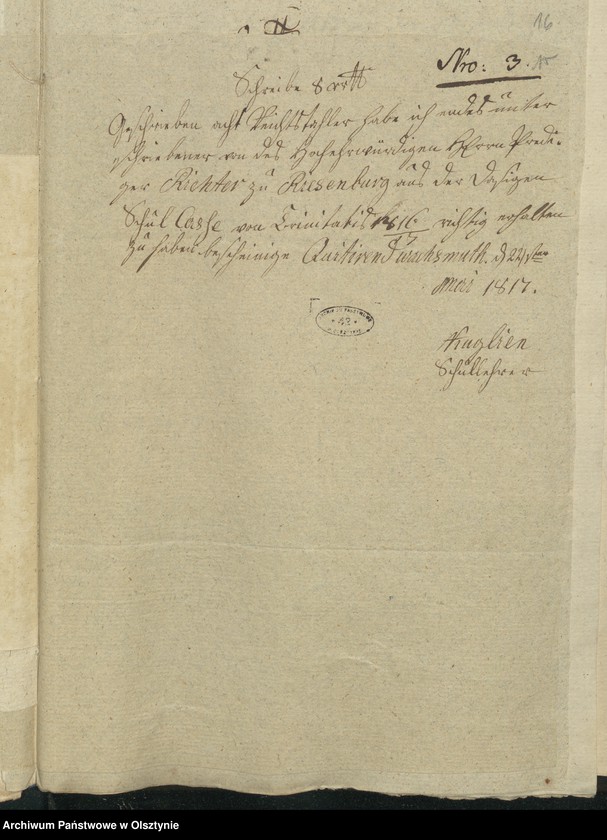 16
Nro: 3.
Schreibe 8 rtl
Geschrieben acht Reichstahler habe ich endes unter
schriebener von des Hochehrwürdigen Herrn Predi-
ger Richter zu Riesenburg aus der Dasigen
Schul Casse von Trinitatis 1816/17 richtig erhalten
zu haben bescheinige Quitiren d 22sten
Mai 1817.
Schullehrer
Archiwum Państwowe w Olsztynie